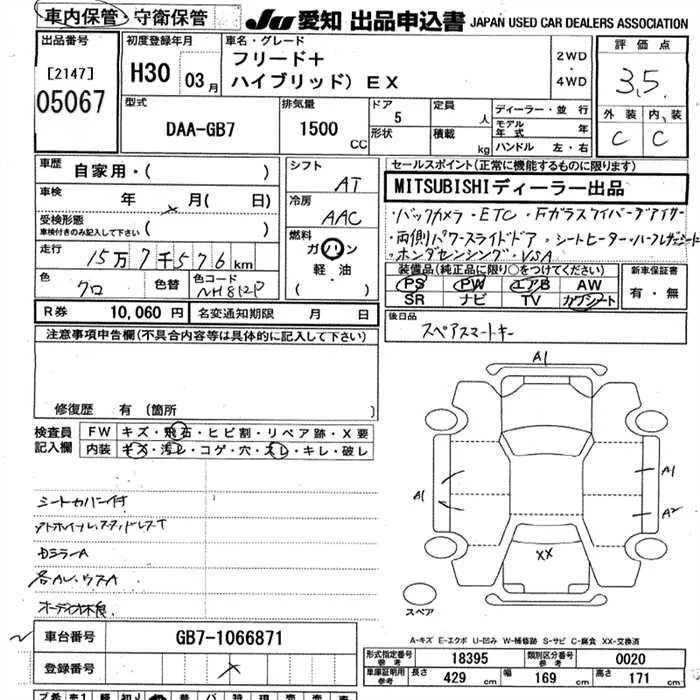 車内保管・守衛保管
JU 愛知 出品申込書 JAPAN USED CAR DEALERS ASSOCIATION
出品番号
[2147]
05067
初度登録年月
H30 03月
車名・グレード
フリード+
ハイブリッド) EX
2WD
・
4WD
評価点
3.5
外装 内装
C C
型式
DAA-GB7
排気量
1500 CC
ドア
5
形状
定員
人
積載
kg
ディーラー・並行
モデル年式 年
ハンドル 左・右
車歴
自家用・( )
車検
年 × 月( 日)
受検形態
車検付きのみ記入して下さい ( )
走行
15万7千576km
色
クロ
色替
色コード
NH812P
シフト
AT
冷房
AAC
燃料
ガソリン
軽・油
( )
セールスポイント(正常に機能するものに限ります)
MITSUBISHIディーラー出品
・バックカメラ・ETC・Fガラスワイパーデアイサー
・両側パワースライドドア・シートヒーター・ハーフレザーシート
・ホンダセンシング・VSA
装備品(純正品に限り○をつけてください)
PS PW エアB AW
SR ナビ TV カワシート
新車保証書
有・無
R券 10,060 円 名変通知期限 月 日
後日品
スペアスマートキー
注意事項申告欄(不具合内容等は具体的に記入して下さい)
修復歴 有 (箇所 )
検査員記入欄
FW キズ・飛石・ヒビ割・リペア跡・X要
内装 キズ・汚レ・コゲ・穴・スレ・キレ・破レ
シートカバー付
Dミラー A
オーディオ不良
A1
A1
A1
A2
XX
スペア
A-キズ E-エクボ U-凹み W-補修跡 S-サビ C-腐食 XX-交換済
車台番号 GB7-1066871
登録番号 ×
形式指定番号 参考 18395 類別区分番号 参考 0020
車庫証明用 参考 長さ 429 cm 幅 169 cm 高さ 171 cm